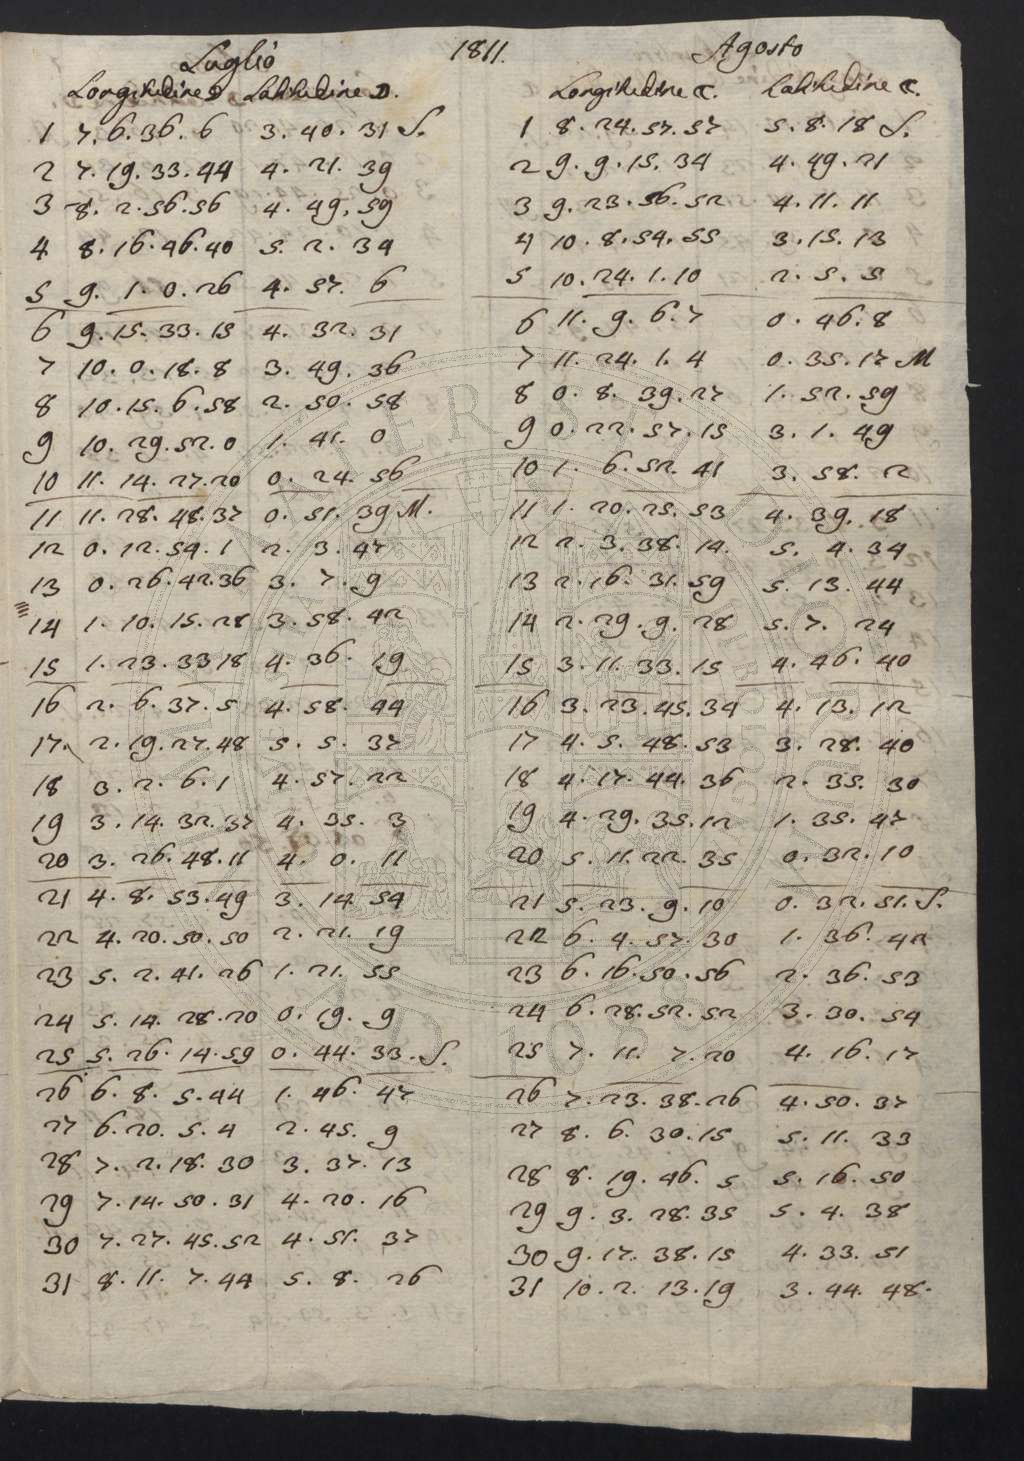 Luglio 1811. Agosto
Longitudine ☽ Latitudine ☽. Longitudine ☾. Latitudine ☾.
1 7. 6. 36. 6 3. 40. 31 S. 1 8. 24. 57. 57 5. 8. 18 S.
2 7. 19. 33. 44 4. 21. 39 2 9. 9. 15. 34 4. 49. 21
3 8. 2. 56. 56 4. 49. 59 3 9. 23. 56. 52 4. 11. 11
4 8. 16. 46. 40 5. 2. 34 4 10. 8. 54. 55 3. 15. 13
5 9. 1. 0. 26 4. 57. 6 5 10. 24. 1. 10 2. 5. 5
6 9. 15. 33. 15 4. 32. 31 6 11. 9. 6. 7 0. 46. 8
7 10. 0. 18. 8 3. 49. 36 7 11. 24. 1. 4 0. 35. 17 M
8 10. 15. 6. 58 2. 50. 58 8 0. 8. 39. 27 1. 52. 59
9 10. 29. 52. 0 1. 41. 0 9 0. 22. 57. 15 3. 1. 49
10 11. 14. 27. 20 0. 24. 56 10 1. 6. 52. 41 3. 58. 2
11 11. 28. 48. 37 0. 51. 39 M. 11 1. 20. 25. 53 4. 39. 18
12 0. 12. 54. 1 2. 3. 47 12 2. 3. 38. 14. 5. 4. 34
13 0. 26. 42. 36 3. 7. 9 13 2. 16. 31. 59 5. 13. 44
14 1. 10. 15. 28 3. 58. 42 14 2. 29. 9. 28 5. 7. 24
15 1. 23. 33 18 4. 36. 19 15 3. 11. 33. 15 4. 46. 40
16 2. 6. 37. 5 4. 58. 44 16 3. 23. 45. 34 4. 13. 12
17. 2. 19. 27. 48 5. 5. 37 17 4. 5. 48. 53 3. 28. 40
18 3. 2. 6. 1 4. 57. 22 18 4. 17. 44. 36 2. 35. 30
19 3. 14. 32. 37 4. 35. 3 19 4. 29. 35. 12 1. 35. 47
20 3. 26. 48. 11 4. 0. 11 20 5. 11. 22. 35 0. 32. 10
21 4. 8. 53. 49 3. 14. 54 21 5. 23. 9. 10 0. 32. 51. S.
22 4. 20. 50. 50 2. 21. 19 22 6. 4. 57. 30 1. 36. 42
23 5. 2. 41. 26 1. 21. 55 23 6. 16. 50. 56 2. 36. 53
24 5. 14. 28. 20 0. 19. 9 24 6. 28. 52. 52 3. 30. 54
25 5. 26. 14. 59 0. 44. 33. S. 25 7. 11. 7. 20 4. 16. 17
26 6. 8. 5. 44 1. 46. 47 26 7. 23. 38. 26 4. 50. 37
27 6. 20. 5. 4 2. 45. 9 27 8. 6. 30. 15 5. 11. 33
28 7. 2. 18. 30 3. 37. 13 28 8. 19. 46. 5 5. 16. 50
29 7. 14. 50. 31 4. 20. 16 29 9. 3. 28. 35 5. 4. 38
30 7. 27. 45. 52 4. 51. 37 30 9. 17. 38. 15 4. 33. 51
31 8. 11. 7. 44 5. 8. 26 31 10. 2. 13. 19 3. 44. 48.